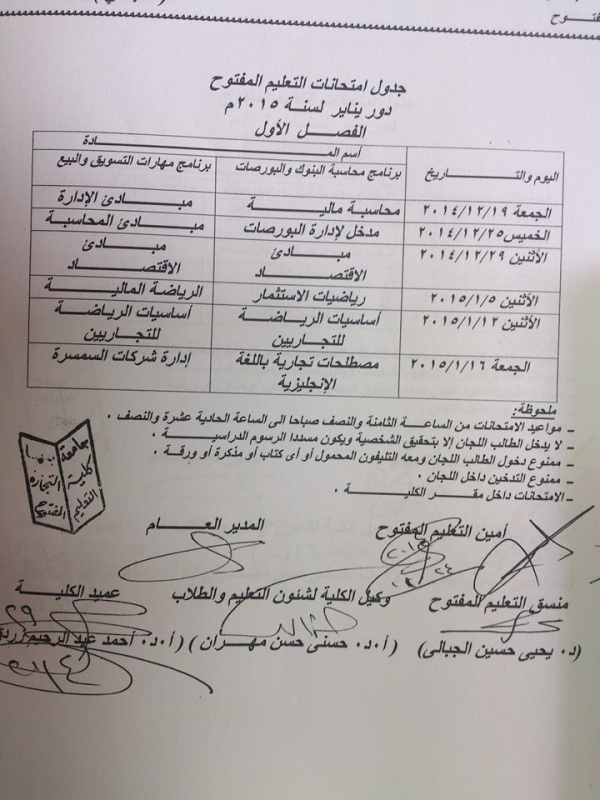 فتوح
جدول امتحانات التعليم المفتوح
دور يناير لسنة ٢٠١٥م
الفصل الأول
اليوم والتاريخ
أسم المادة
برنامج محاسبة البنوك والبورصات
برنامج مهارات التسويق والبيع
الجمعة ٢٠١٤/١٢/١٩ محاسبة مالية مبادئ الإدارة
الخميس ٢٠١٤/١٢/٢٥ مدخل لإدارة البورصات مبادئ المحاسبة
الأثنين ٢٠١٤/١٢/٢٩ مبادئ الاقتصاد مبادئ الاقتصاد
الأثنين ٢٠١٥/١/٥ رياضيات الاستثمار الرياضة المالية
الأثنين ٢٠١٥/١/١٢ أساسيات الرياضة للتجاريين أساسيات الرياضة للتجاريين
الجمعة ٢٠١٥/١/١٦ مصطلحات تجارية باللغة الإنجليزية إدارة شركات السمسرة
ملحوظة:
- مواعيد الامتحانات من الساعة الثامنة والنصف صباحا الى الساعة الحادية عشرة والنصف .
- لا يدخل الطالب اللجان إلا بتحقيق الشخصية ويكون مسددا الرسوم الدراسية .
- ممنوع دخول الطالب اللجان ومعه التليفون المحمول أو أى كتاب أو مذكرة أو ورقة .
- ممنوع التدخين داخل اللجان .
- الامتحانات داخل مقر الكلية .
جامعة
كلية التجارة
التعليم المفتوح
أمين التعليم المفتوح
المدير العام
منسق التعليم المفتوح
وكيل الكلية لشئون التعليم والطلاب
عميد الكلية
(د. يحيى حسين الجبالى)
(أ.د. حسنى حسن مهران)
(أ.د. أحمد عبد الرحيم زردق